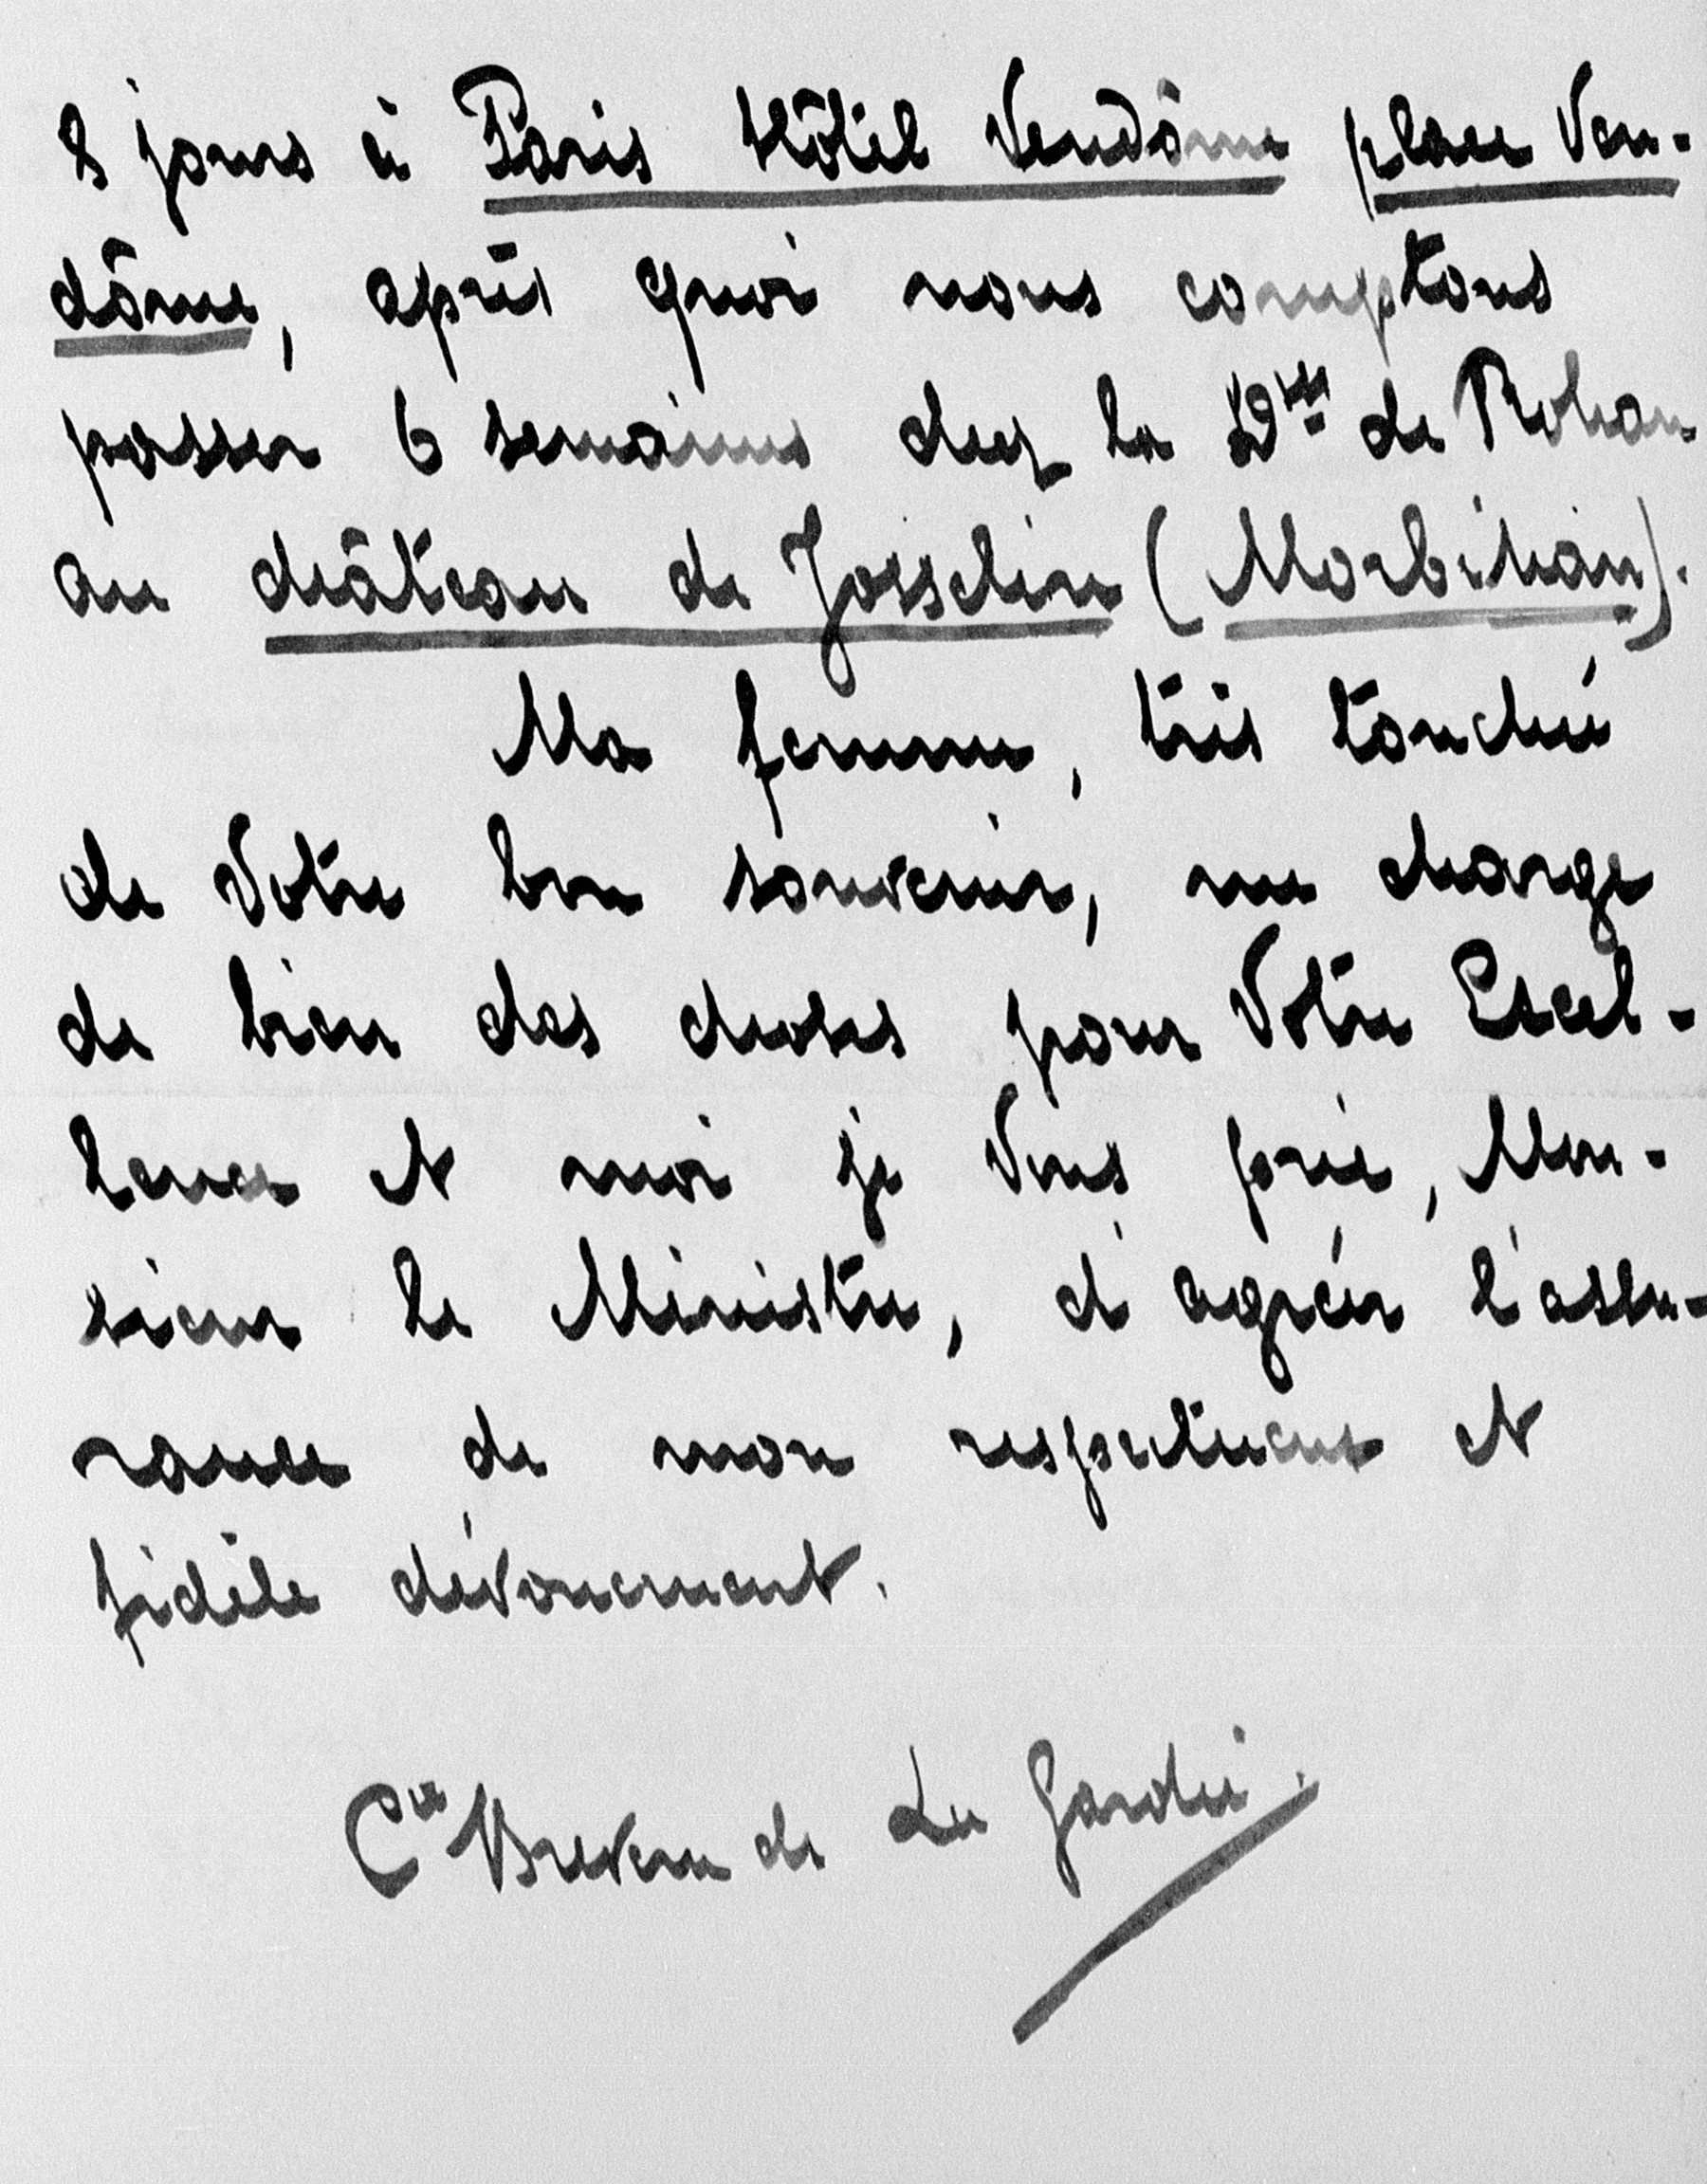 8 jours à Paris Hôtel Vendôme place Ven-
dôme, après quoi nous comptons
passer 6 semaines chez la D^sse de Rohan
au château de Josselin (Morbihan).
Ma femme, très touchée
de Votre bon souvenir, me charge
de bien des choses pour Votre Excel-
lence et moi je Vous prie, Mon-
sieur le Ministre, d'agréer l'assu-
rance de mon respectueux et
fidèle dévouement.
C^te Brevern de La Gardie.